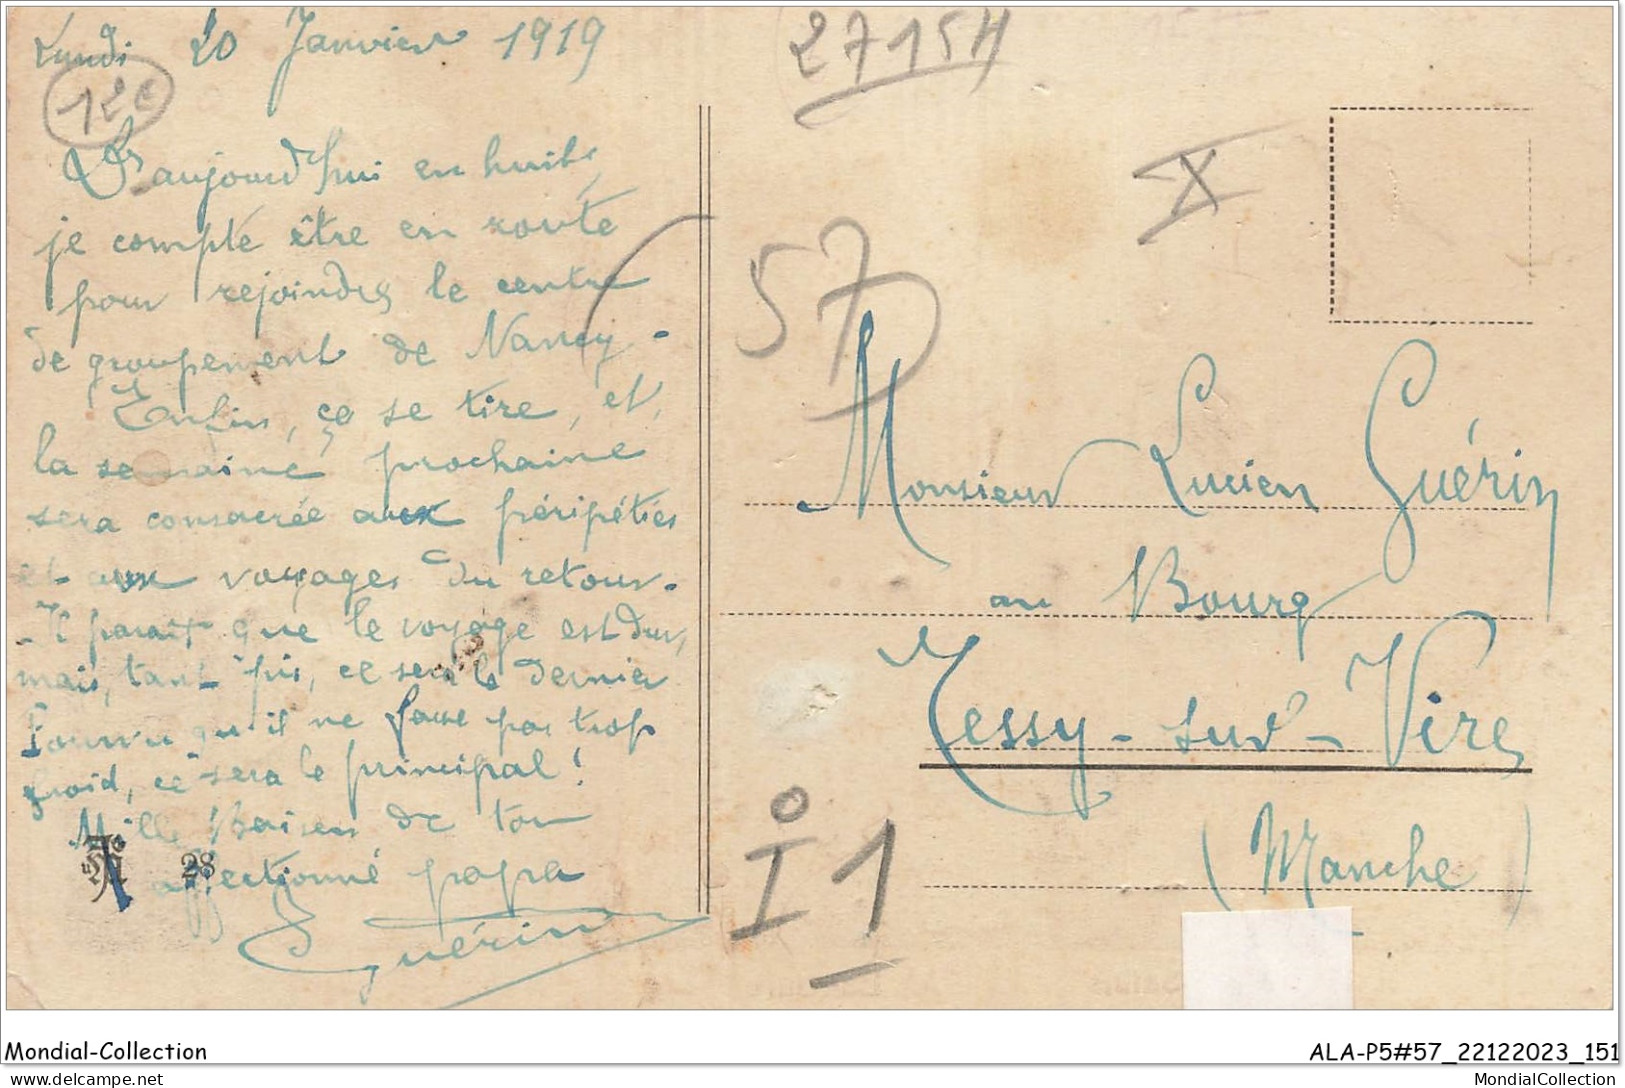 Lundi 20 Janvier 1919
12€
D'aujourd'hui en huit,
je compte être en route
pour rejoindre le centre
de groupement de Nancy -
Enfin, ça se tire, et,
la semaine prochaine
sera consacrée aux péripéties
et aux voyages du retour.
- Il parait que le voyage est dur,
mais, tant pis, ce sera le dernier
Pourvu qu'il ne fasse pas trop
froid, ce sera le principal!
Mille Baisers de ton
affectionné papa
Guérin
28
2715H
X
57
Monsieur Lucien Guérin
au Bourg
Tessy-sur-Vire
(Manche)
I 1
Mondial-Collection
ALA-P5#57_22122023_151
www.delcampe.net
MondialCollection